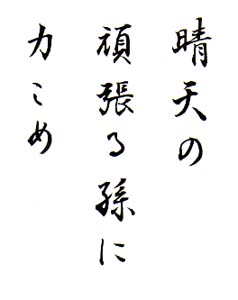 晴天の
頑張る孫に
力こめ